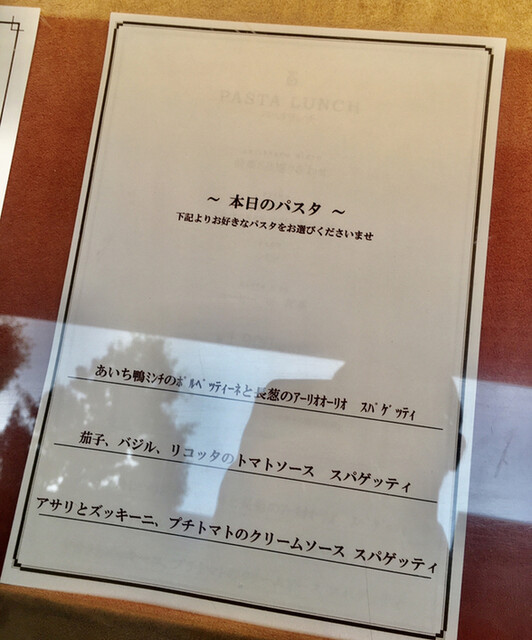 PASTA LUNCH
～ 本日のパスタ ～
下記よりお好きなパスタをお選びくださいませ
あいち鴨ﾐﾝﾁのﾎﾟﾙﾍﾟｯﾃｨｰﾈと長葱のｱｰﾘｵｵｰﾘｵ　ｽﾊﾟｹﾞｯﾃｨ
茄子、バジル、リコッタのトマトソース　スパゲッティ
アサリとズッキーニ、プチトマトのクリームソース スパゲッティ